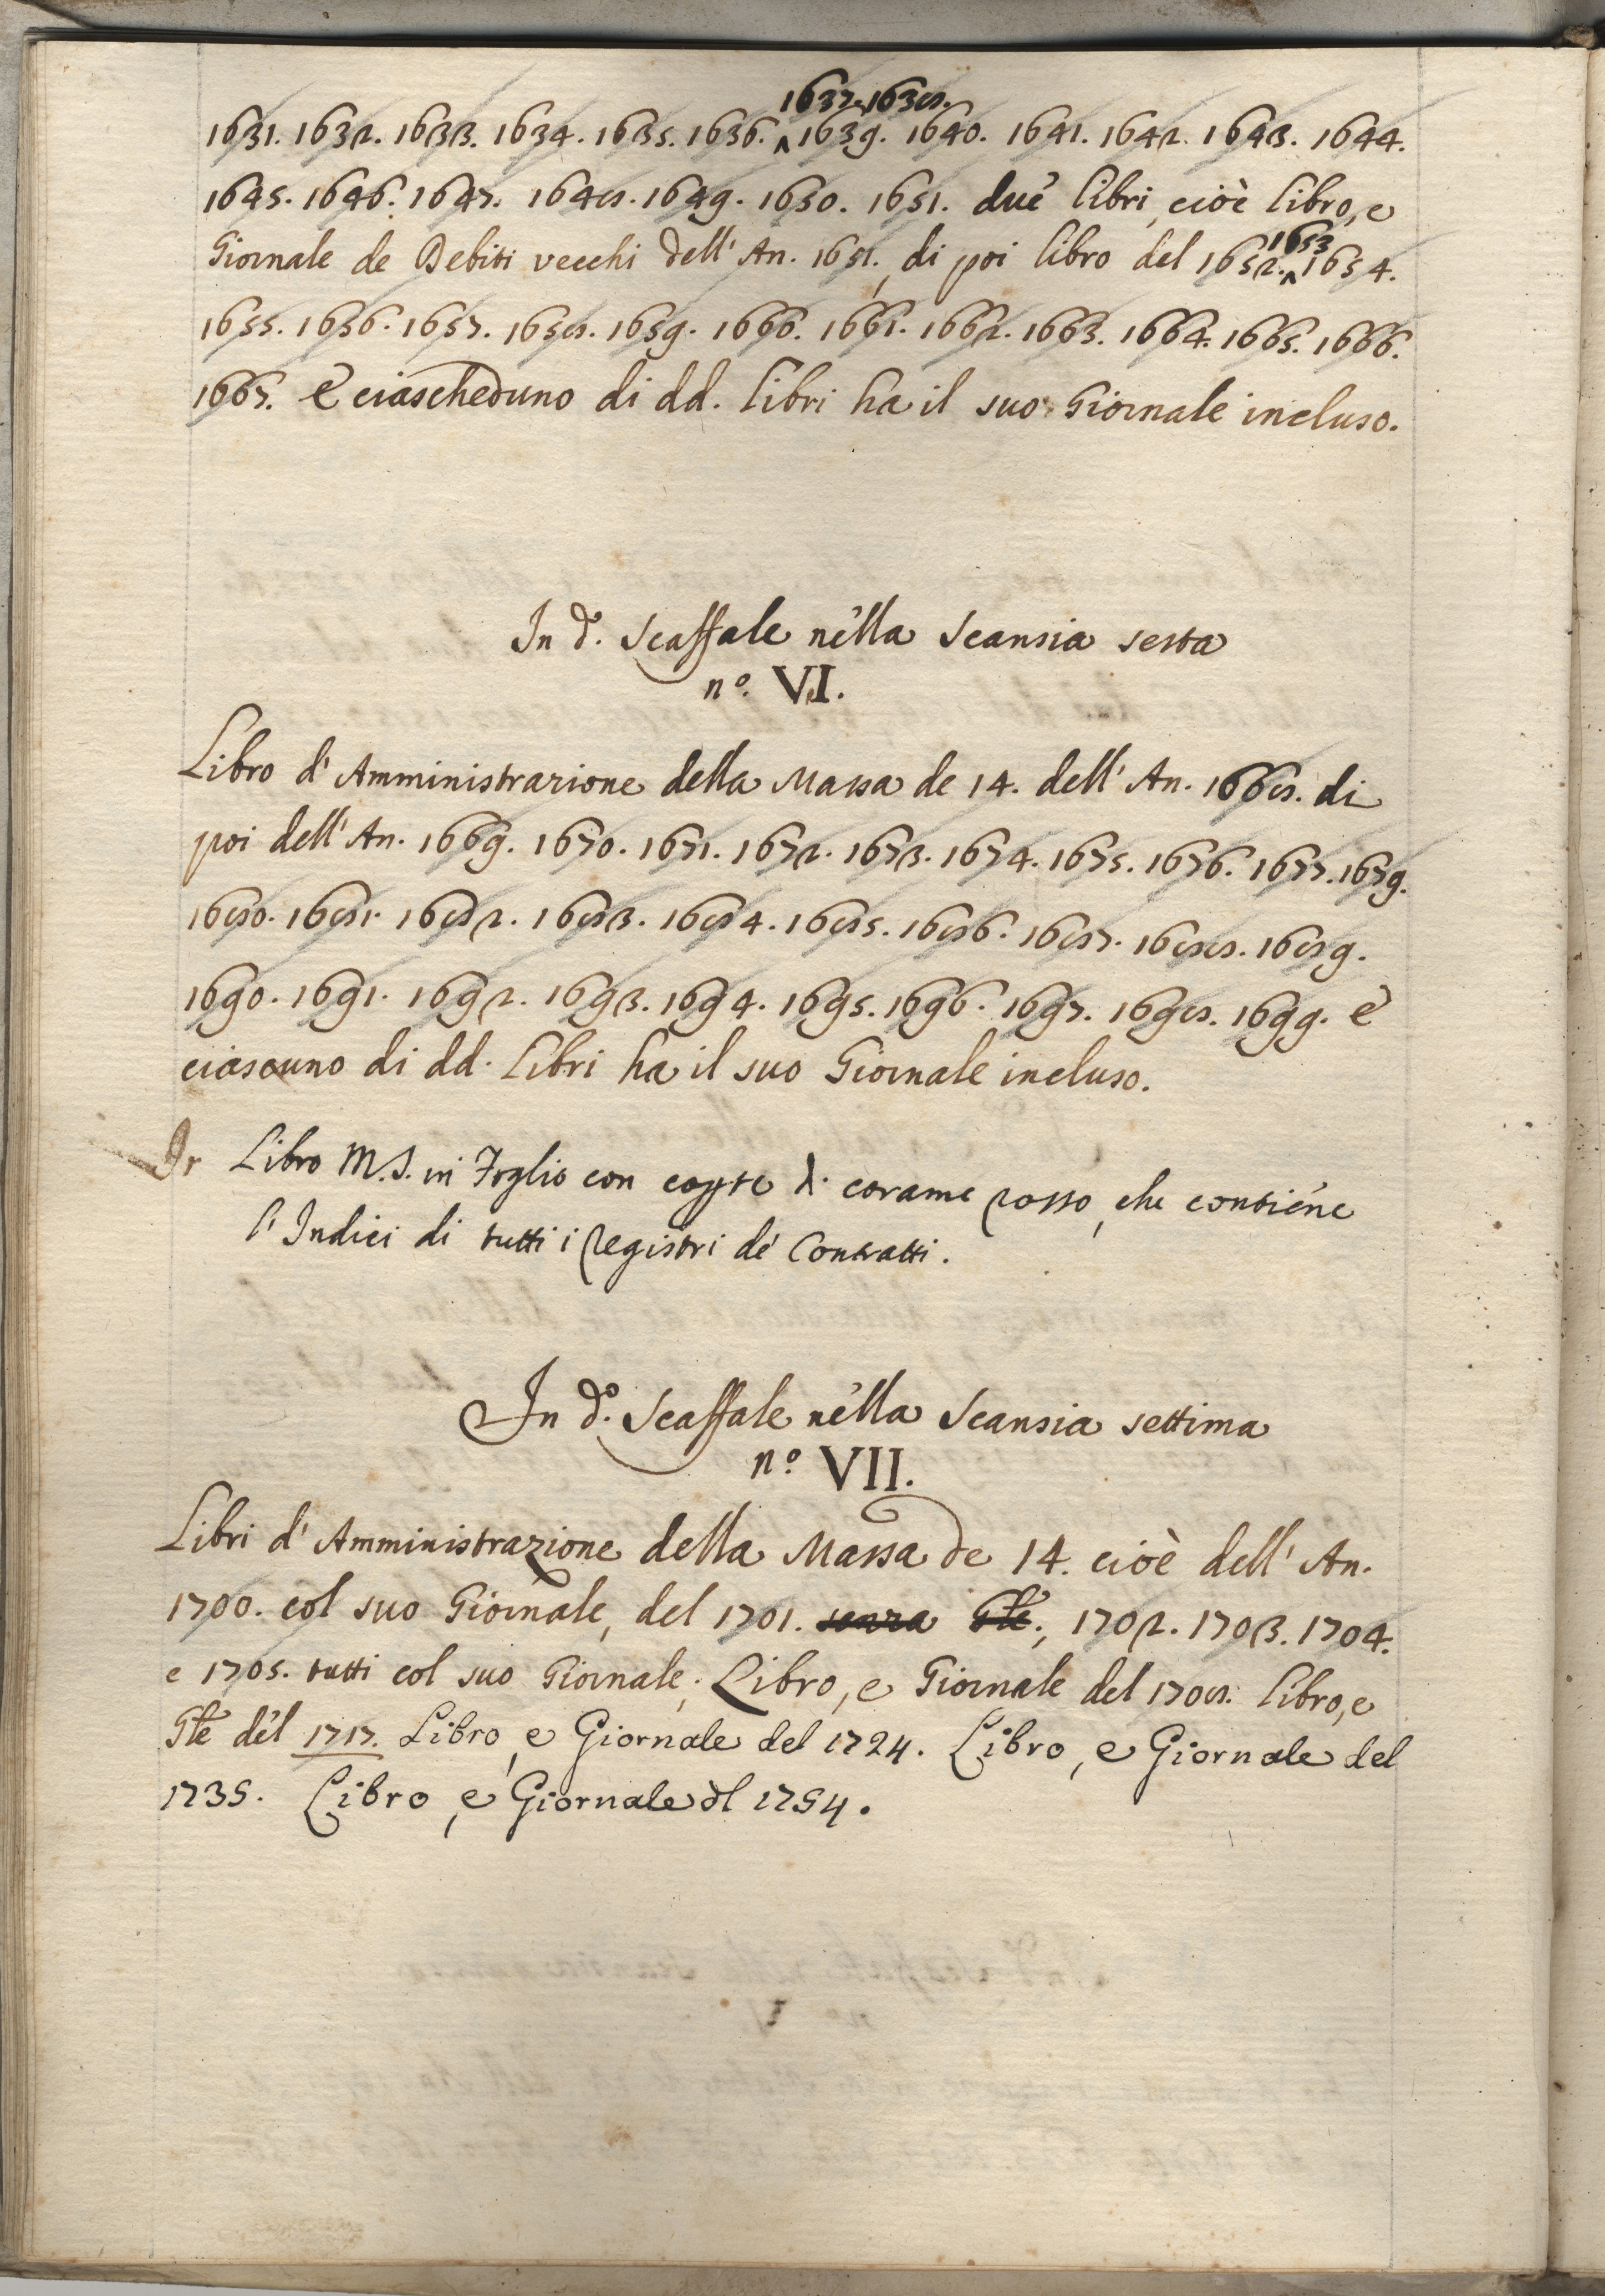 1637. 1638.
1631. 1632. 1633. 1634. 1635. 1636. ^ 1639. 1640. 1641. 1642. 1643. 1644.
1645. 1646. 1647. 1648. 1649. 1650. 1651. duè libri, cioè libro, e
1653
Giornale de Debiti vecchi dell' An. 1651., di poi libro del 1652. ^ 1654.
1655. 1656. 1657. 1658. 1659. 1660. 1661. 1662. 1663. 1664. 1665. 1666.
1667. è ciascheduno di dd. libri ha il suo Giornale incluso.
In d.º Scaffale nella Scansia sesta
nº. VI.
Libro d' Amministrazione della Massa de 14. dell' An. 1668. di
poi dell' An. 1669. 1670. 1671. 1672. 1673. 1674. 1675. 1676. 1677. 1679.
1680. 1681. 1682. 1683. 1684. 1685. 1686. 1687. 1688. 1689.
1690. 1691. 1692. 1693. 1694. 1695. 1696. 1697. 1698. 1699. è
ciascuno di dd. libri ha il suo Giornale incluso.
Libro M.S. in Foglio con coperte di corame rosso, che contiene
l' Indici di tutti i Registri de' Contratti.
In d.º Scaffale nella Scansia settima
nº. VII.
Libri d' Amministrazione della Massa de 14. cioè dell' An.
1700. col suo Giornale, del 1701. senza Gle., 1702. 1703. 1704.
e 1705. tutti col suo Giornale; Libro, e Giornale del 1708. libro, e
Gle del 1717. Libro, e Giornale del 1724. Libro, e Giornale del
1735. Libro, e Giornale dl 1754.